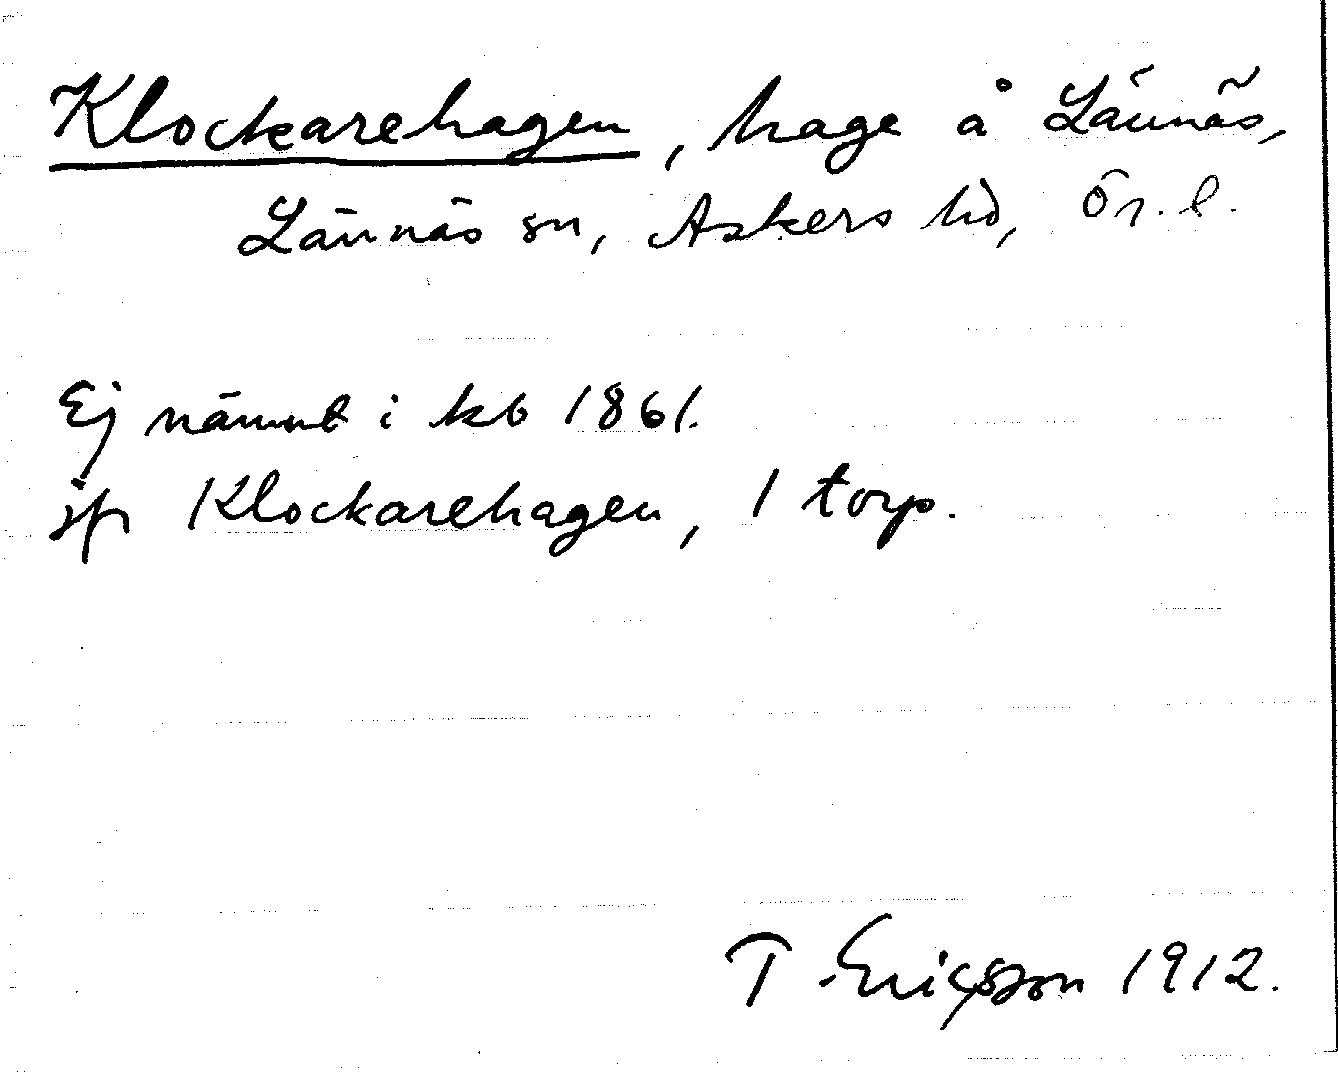 Klockarehagen, hage å Lännäs,
Lännäs sn, Askers hd, Ör. l.
Ej nämnt i kb 1861.
jfr Klockarehagen, 1 torp.
T. Ericsson 1912.